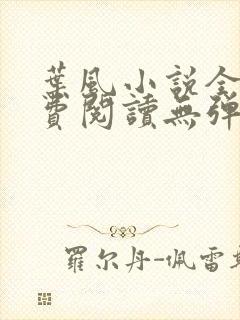 葉風小說全
費閱讀無彈
羅尔丹-佩雷